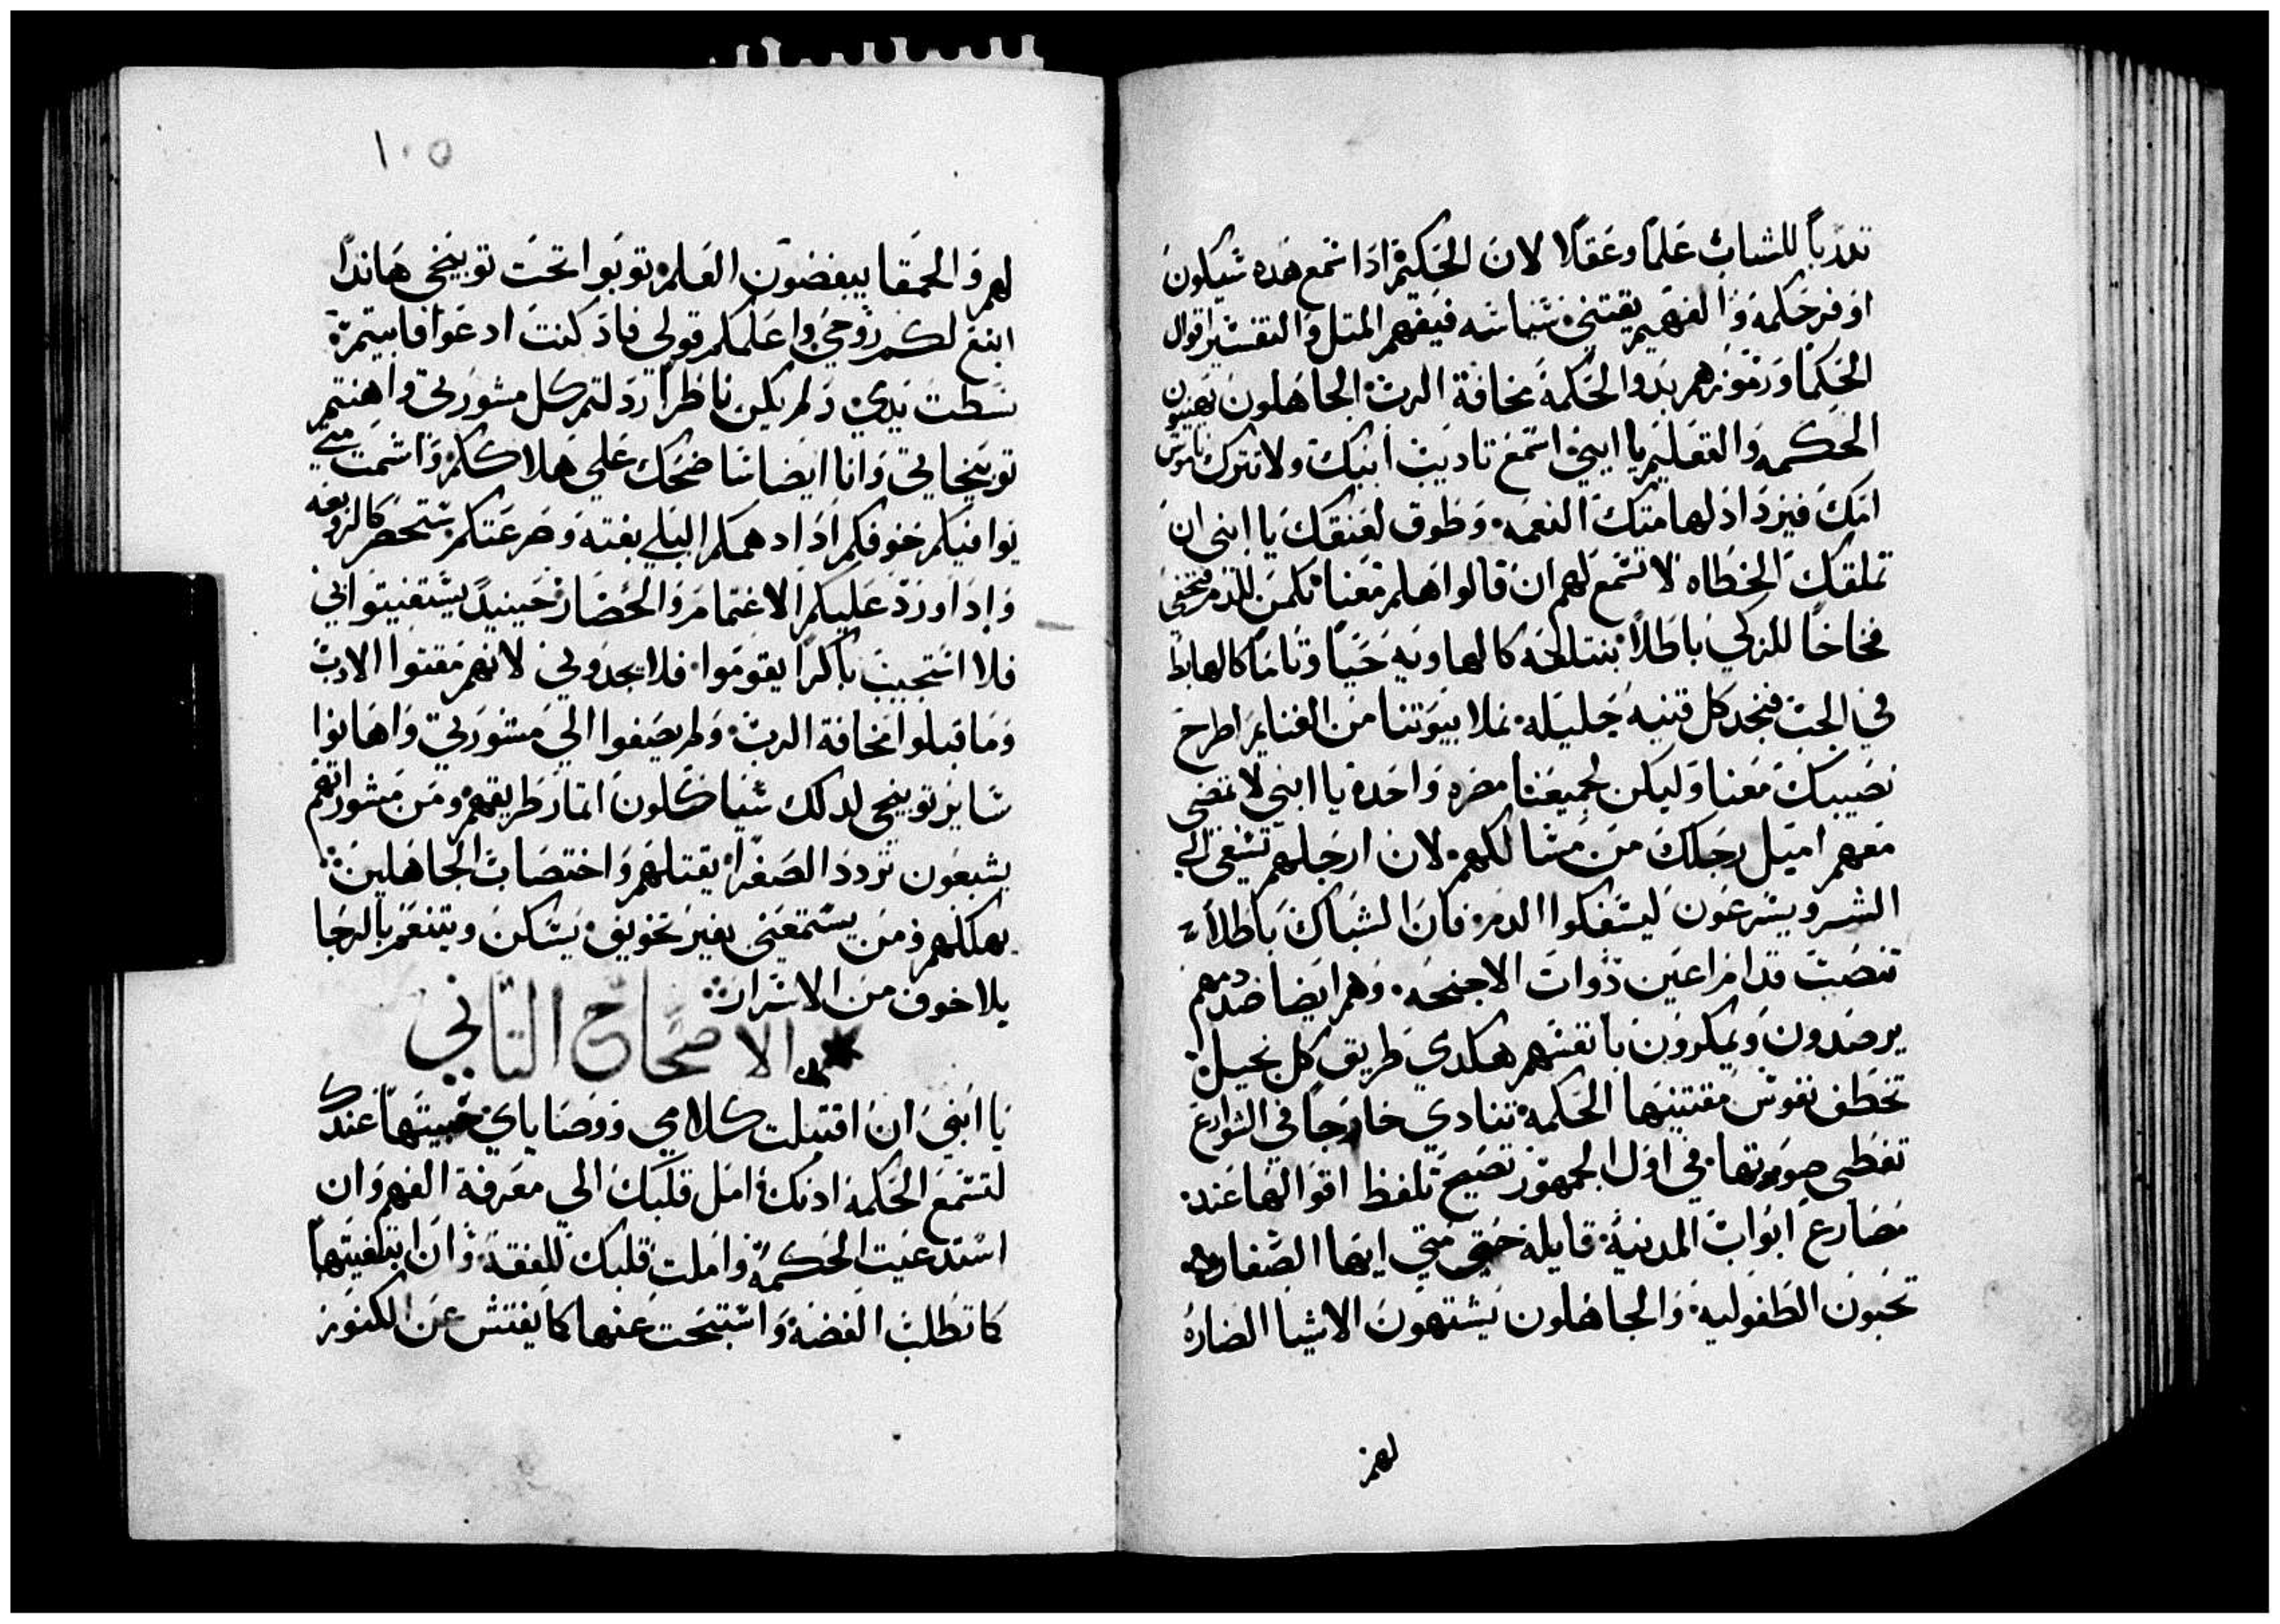 تدرباً للشاب علماً وعقلاً لان الحكيم اذا سمع هده سيكون
اوفر حكمه والفهيم يقتني سياسه فيفهم المتل والتفسير اقوال
الحكما ورموزهم بدو الحكمة مخافة الرب الجاهلون يهينون
الحكمه والتعليم يا ابني استمع تاديب ابيك ولا تترك ناموس
امك فيزداد لهامتك النعمه وطوق لعنقك يا ابني ان
تملقك الخطاه لا تسمع لهم ان قالوا هلم معنا نكمن للدم فنخفي
فخاخاً للزكي باطلاً نبتلعه كالهاويه حياً وتاماً كالهابط
في الجب فنجد كل قنيه جليله نملا بيوتنا من الغنايم اطرح
نصيبك معنا وليكن لجميعنا مصره واحدة يا ابني لا تمضي
معهم اميل رجلك من مسالكهم لان ارجلهم تسعى الي
الشر ويسرعون ليسفكوا الدم فان الشباك باطلاً
تنصب قدام اعين دوات الاجنحه وهم ايضا ضد دمهم
يرصدون ويمكرون بانفسهم هكدي طريق كل بخيل
تخطف نفوس مقتنيها الحكمة تنادي خارجاً في الشوارع
تعطي صوتها في اول الجمهور تصيح تلفظ اقوالها عند
مصارع ابواب المدينة قايلة حتي متي ايها الصغار
تحبون الطفولية والجاهلون يشتهون الاشيا الضاره
لهم
١٠٥
لهم والحمقا يبغضون العلم توبوا تحت توبيخي هاندا
ابنع لكم روحي واعلمكم قولي فاد كنت ادعوا فابيتم
بسطت يدي ولم يكن ناظراً ردلتم كل مشورتي واهنتم
توبيخاتي وانا ايضا ساضحك علي هلاككم واشمت متي
يوافيكم خوفكم ادا دهمكم البلي بغتة وصرعتكم ستحضر كالزوبعه
وادا ورد عليكم الاغتمام والحصار حينيد يستغيتوا بي
فلا استجيب باكراً يقوموا فلا يجدوني لانهم مقتوا الادب
وما قبلوا مخافة الرب ولم يصغوا الي مشورتي واهانوا
ساير توبيخي لدلك سياكلون اتمار طريقهم ومن مشوراتهم
يشبعون تردد الصغرا يقتلهم واختصاب الجاهلين
يهلكهم ومن يستمعني بغير تخويف يسكن ويتنعم بالرجا
بلا خوف من الاشرار
الاصحاح التاني
يا ابني ان اقتبلت كلامي ووصاياي خبيتها عندك
لتسمع الحكمة ادنك امل قلبك الي معرفة الفهم وان
استدعيت الحكمة واملت قلبك للفقه وان ابتغيتها
كما تطلب الفضة واستبحت عنها كما يفتش عن الكنوز